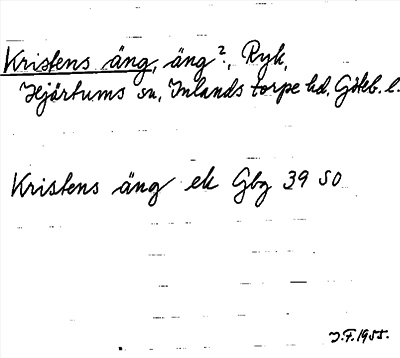 Kristens äng, äng?, Ryk,
Hjärtums sn, Inlands torpe hd, Göteb. l.
Kristens äng ek Gbg 39 SO
J.F. 1955.